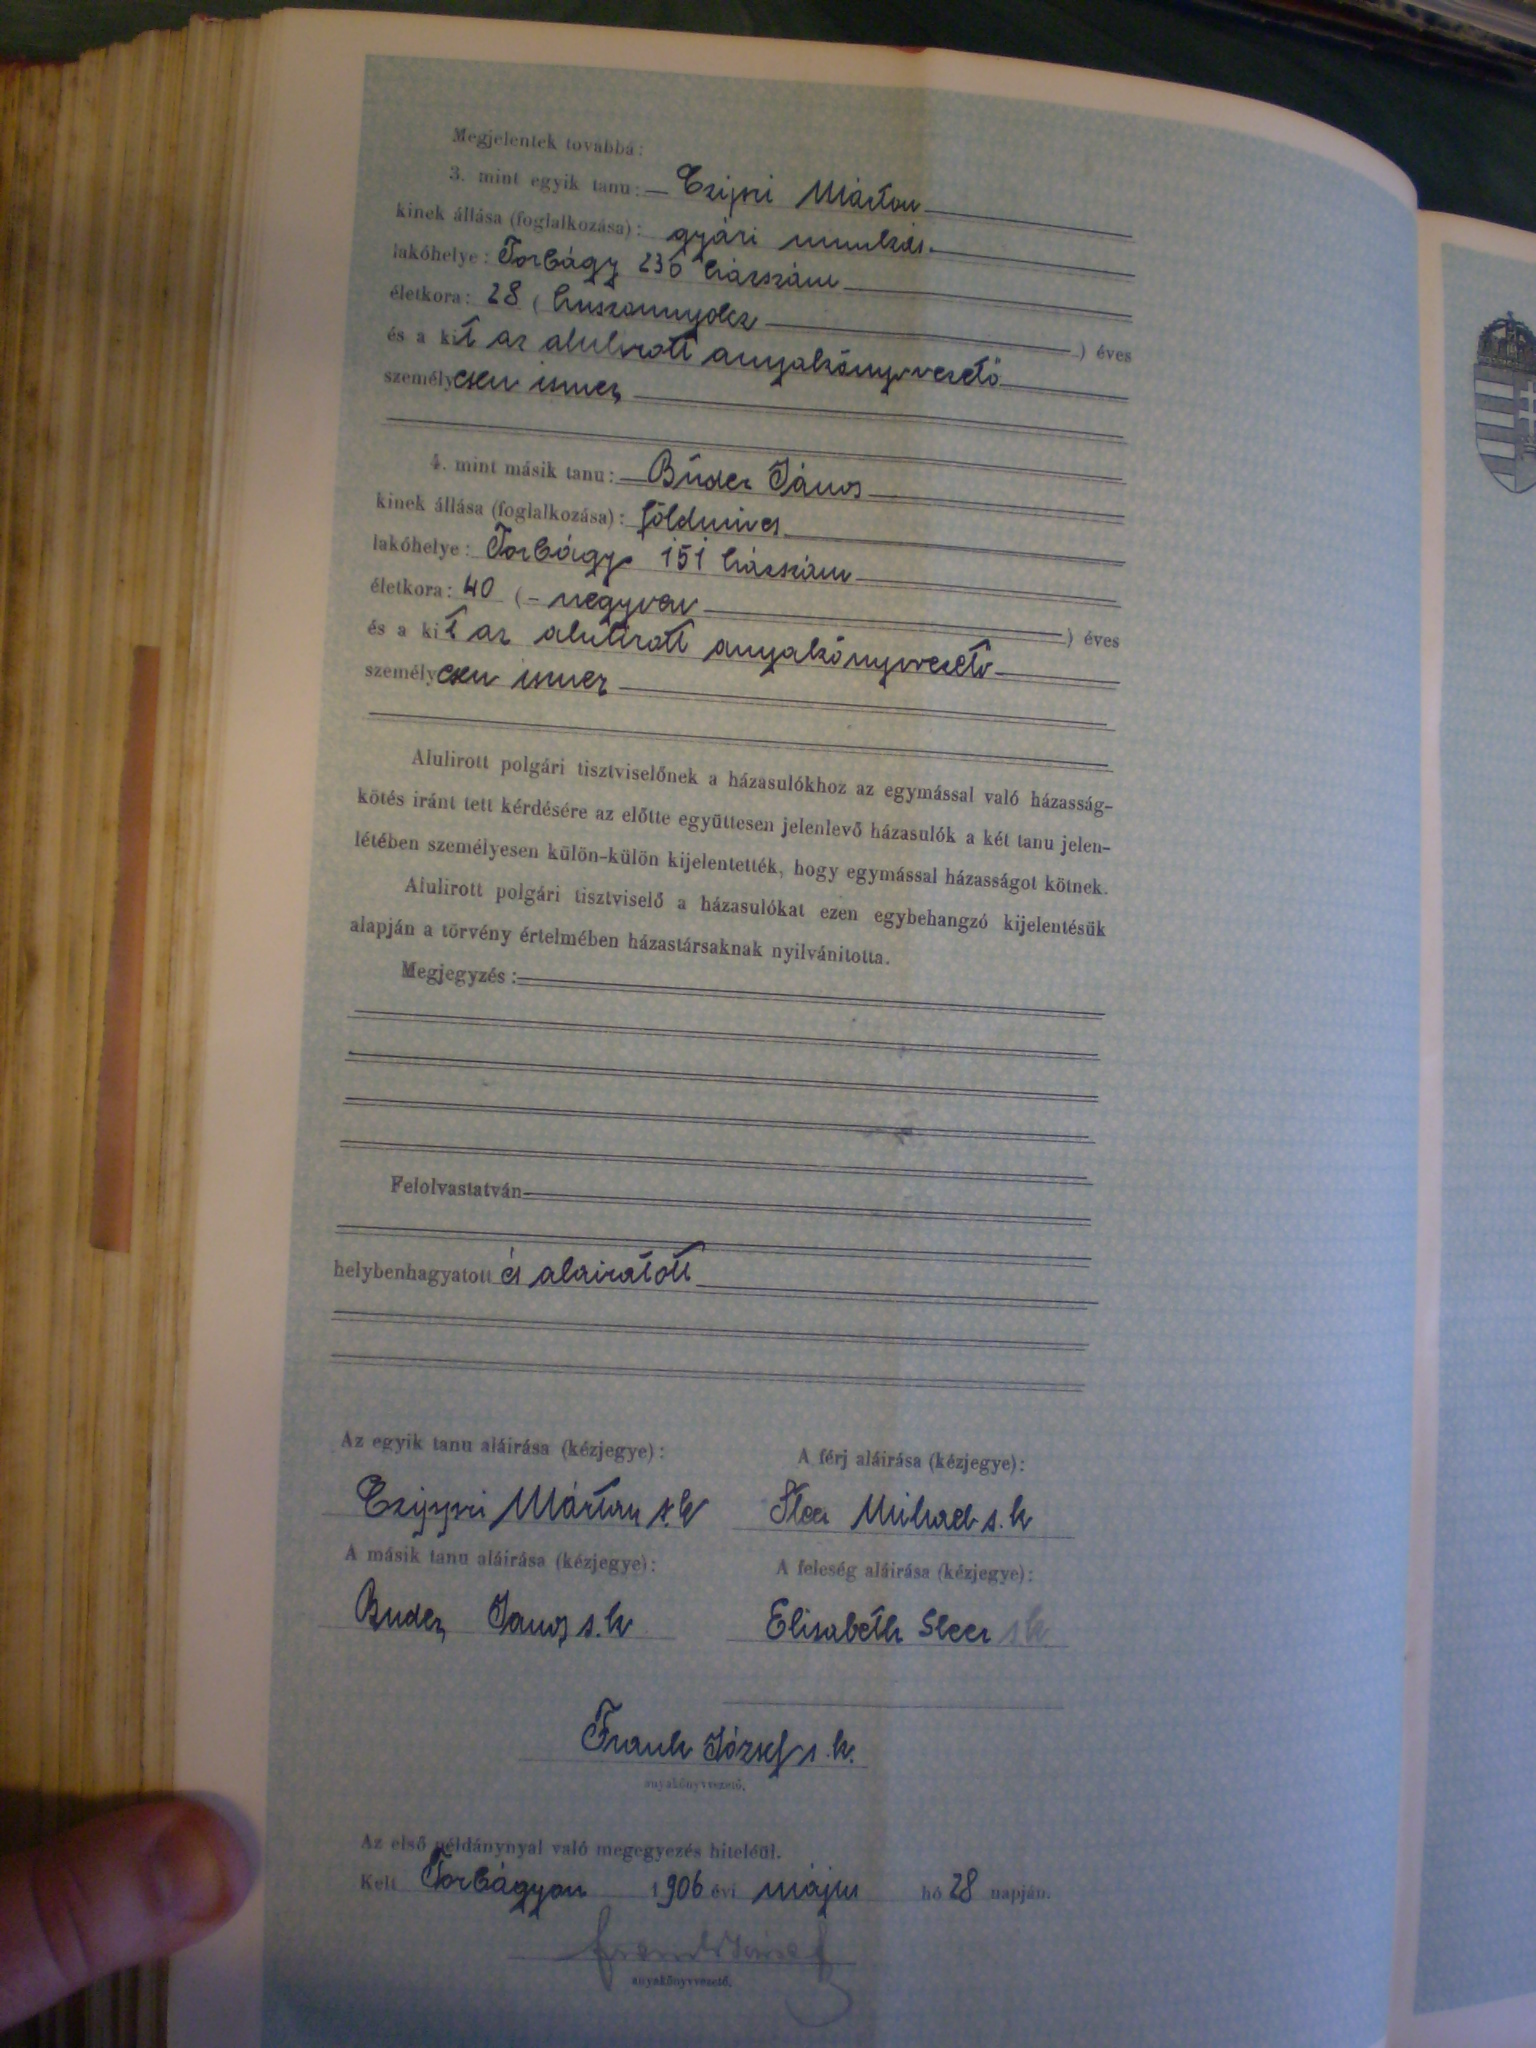 Megjelentek továbbá:
3. mint egyik tanu: Czipri Márton
kinek állása (foglalkozása): gyári munkás
lakóhelye: Torbágy 236 házszám
életkora: 28 ( huszonnyolcz ) éves
és a kit az alulirott anyakönyvvezető
személyesen ismer
4. mint másik tanu: Búder János
kinek állása (foglalkozása): földmives
lakóhelye: Torbágy 151 házszám
életkora: 40 (- negyven ) éves
és a kit az alulirott anyakönyvvezető
személyesen ismer
Alulirott polgári tisztviselőnek a házasulókhoz az egymással való házasság-
kötés iránt tett kérdésére az előtte együttesen jelenlevő házasulók a két tanu jelen-
létében személyesen külön-külön kijelentették, hogy egymással házasságot kötnek.
Alulirott polgári tisztviselő a házasulókat ezen egybehangzó kijelentésük
alapján a törvény értelmében házastársaknak nyilvánitotta.
Megjegyzés:
Felolvastatván
helybenhagyatott és aláiratott
Az egyik tanu aláirása (kézjegye): A férj aláirása (kézjegye):
Czippri Márton s.k Sleer Michael s.k
A másik tanu aláirása (kézjegye): A feleség aláirása (kézjegye):
Buder Janos s.k Elisabeth Sleer s k
Frank József s.k.
anyakönyvvezető.
Az első példánynyal való megegyezés hiteléül.
Kelt Torbágyon 1906 évi május hó 28 napján.
Frank József
anyakönyvvezető.